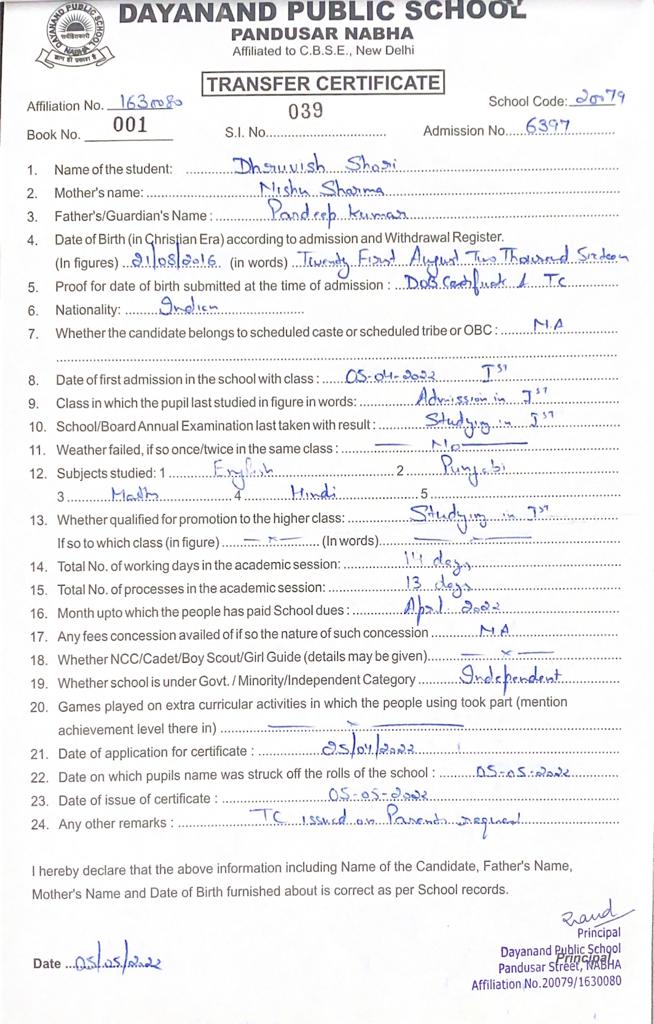 DAYANAND PUBLIC SCHOOL
PANDUSAR NABHA
Affiliated to C.B.S.E., New Delhi
TRANSFER CERTIFICATE
Affiliation No. 1630080 School Code: 20079
Book No. 001 S.I. No. 039 Admission No. 6397
1. Name of the student: Dhruvish Shori
2. Mother's name: Nishu Sharma
3. Father's/Guardian's Name : Pardeep Kumar
4. Date of Birth (in Christian Era) according to admission and Withdrawal Register.
(In figures) 21/08/2016 (in words) Twenty First August Two Thousand Sixteen
5. Proof for date of birth submitted at the time of admission : DoB Certificate & TC
6. Nationality: Indian
7. Whether the candidate belongs to scheduled caste or scheduled tribe or OBC : N.A
8. Date of first admission in the school with class : 05-04-2022 Ist
9. Class in which the pupil last studied in figure in words: Admission in Ist
10. School/Board Annual Examination last taken with result : Studying in Ist
11. Weather failed, if so once/twice in the same class : No
12. Subjects studied: 1 English 2 Punjabi
3 Math 4 Hindi 5
13. Whether qualified for promotion to the higher class: Studying in Ist
If so to which class (in figure) — x — (In words)
14. Total No. of working days in the academic session: 14 days
15. Total No. of processes in the academic session: 13 days
16. Month upto which the people has paid School dues : April 2022
17. Any fees concession availed of if so the nature of such concession N A
18. Whether NCC/Cadet/Boy Scout/Girl Guide (details may be given) — x —
19. Whether school is under Govt. / Minority/Independent Category Independent
20. Games played on extra curricular activities in which the people using took part (mention
achievement level there in)
21. Date of application for certificate : 25/04/2022
22. Date on which pupils name was struck off the rolls of the school : 05-05-2022
23. Date of issue of certificate : 05-05-2022
24. Any other remarks : TC issued on Parents request
I hereby declare that the above information including Name of the Candidate, Father's Name,
Mother's Name and Date of Birth furnished about is correct as per School records.
Principal
Dayanand Public School
Principal
Date 05/05/2022 Pandusar Street, NABHA
Affiliation No.20079/1630080